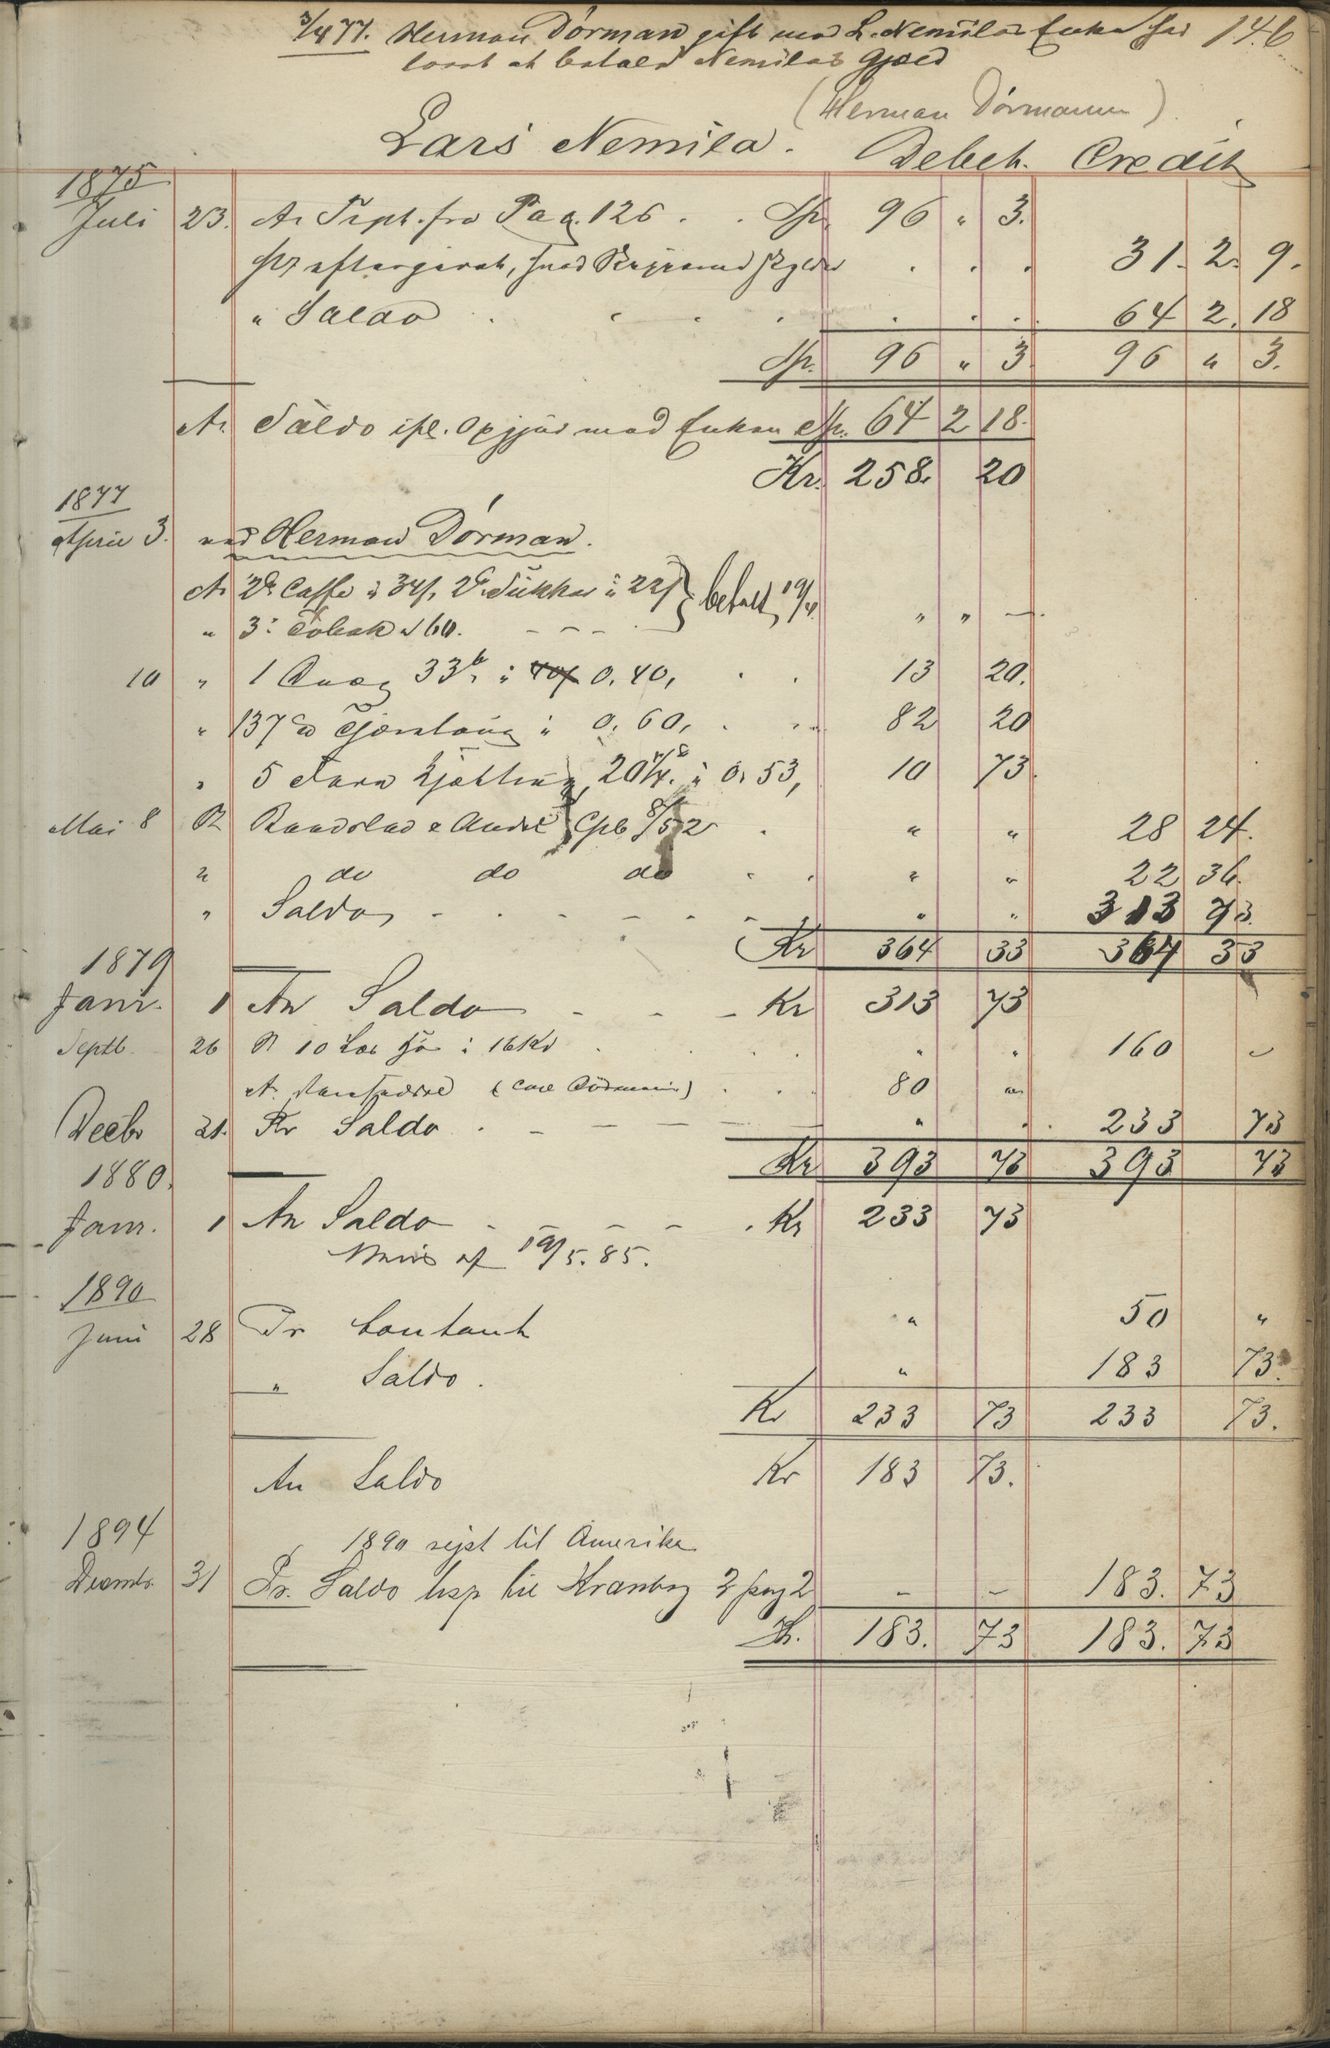 3/4 77. Herman Dörman gift med L. Nemilas Enke har 146
lovet at betale Nemilas Gjæld
(Herman Dörmann)
Lars Nemila. Debet. Credit
1875
Juli 23. An Trspt. fra Pag. 126 . . Sp. 96 " 3.
Pr eftergivet, 31. 2. 9.
" Saldo . . . . 64 2. 18
Sp. 96 " 3 96 " 3.
An Saldo ifl. Opgjör med Enken Sp. 64 2 18.
Kr. 258. 20
1877
April 3. ved Herman Dörman.
An 2 ℔ Caffe à 34/, 2 ℔ Sukker à 22/ } betalt 19/4. " " —
" 3: Tobak à 60. - - -
10 " 1 33 ℔, à 40/ 0.40, . . 13 20.
" 137 ℔ à 0.60, . . 82 20
" 5 20 1/4 ℔ à 0.53, 10 73.
Mai 8 Pr Cpb 8/52 . " " 28 24.
" do do do . . " " 22 36.
" Saldo, - . . - - - " " 313 73.
Kr 364 33 364 33
1879
Janr. 1 An Saldo - - - Kr 313 73
Septb. 26 Pr 10 Læs Hö à 16 Kr . . . " " 160 -
An . . . 80 "
Decbr 31. Pr Saldo . - - - - " . 233 73
Kr 393 73 393 73
1880.
Janr. 1 An Saldo - - - - . Kr 233 73
af 19/5. 85.
1890
Juni 28 Pr Contant " 50 "
" Saldo. " 183 73.
Kr 233 73 233 73.
An Saldo Kr 183 73.
1894
1890 rejst til Amerika
Decembr. 31 Pr. Saldo trsp til Krambog 3 pag 2 - - 183. 73
Kr. 183. 73 183. 73